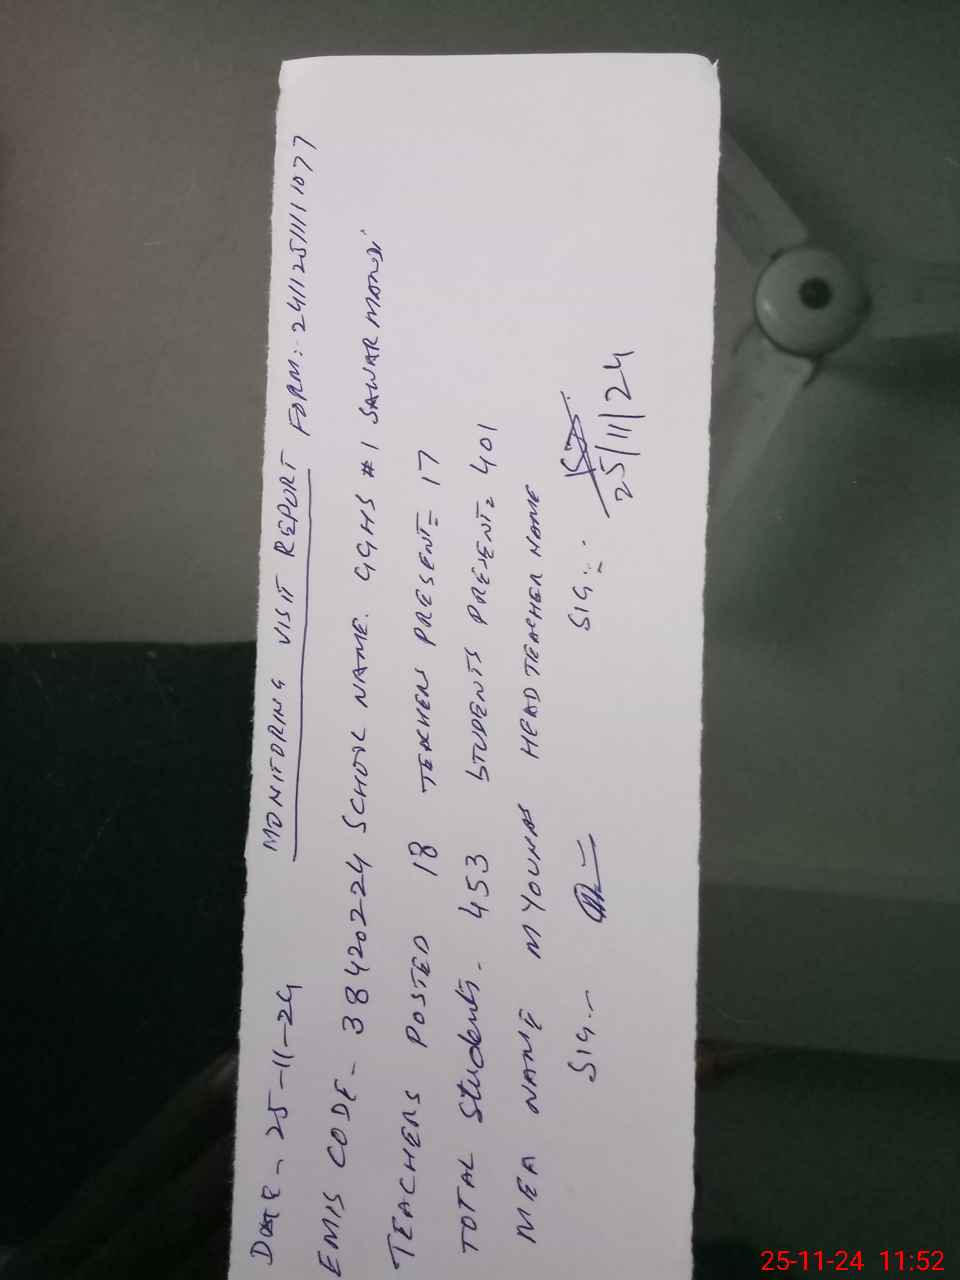 Date - 25-11-24 MONITORING VISIT REPORT FORM:- 241125111077
EMIS CODE - 38420224 SCHOOL NAME. GGHS #1 SAWAR MANDI
TEACHERS POSTED 18 TEACHERS PRESENT= 17
TOTAL Students. 453 STUDENTS PRESENT= 401
MEA NAME M YOUNAS HEAD TEACHER NAME
SIG.- SIG:-
25/11/24
25-11-24 11:52